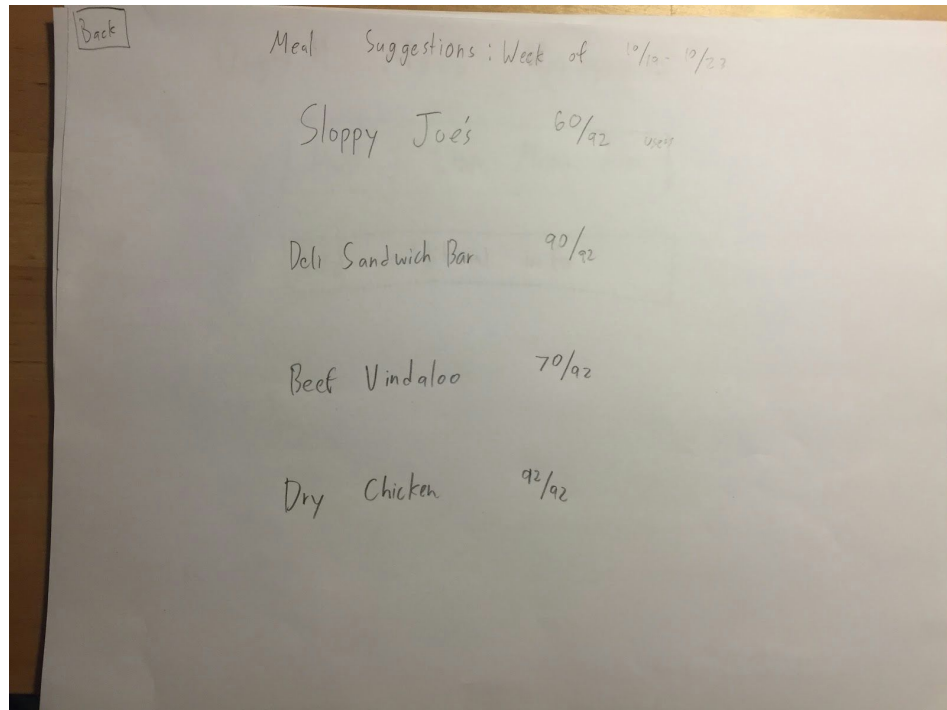 Back
Meal Suggestions: Week of
Sloppy Joe's 60/92
Deli Sandwich Bar 90/92
Beef Vindaloo 70/92
Dry Chicken 92/92